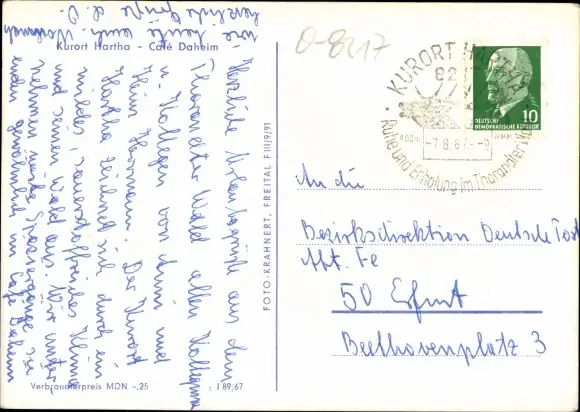 Kurort Hartha - Café Daheim
Herzliche Urlaubsgrüße aus dem
Tharandter Wald allen Kolleginnen
u. Kollegen von Ihnen und
Herrmann. Der Kurort
Hartha zeichnet sich durch ein
mildes, sauerstoffreiches Klima
und seinen Wald aus. Wir unter-
nehmen
enden gewöhnlich im Café Daheim
wie heute auch.
herzliche Grüße d. O.
Verbraucherpreis MDN -,25
I 89/67
FOTO-KRAHNERT, FREITAL F III/9/91
0-8217
KURORT HARTHA
821
400m
-7.8.67.--9
Ruhe und Erholung im Tharandter Wald
10
DEUTSCHE
DEMOKRATISCHE REPUBLIK
An die
Bezirksdirektion Deutsche Post
Abt. Fe
50 Erfurt
Beethovenplatz 3